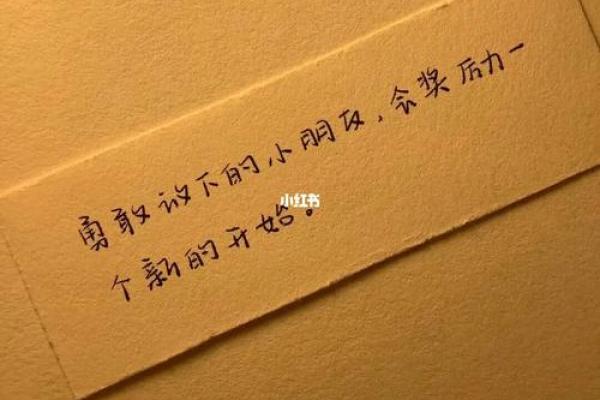 勇敢放下的小朋友，会奖励一
个新的开始。
小红书